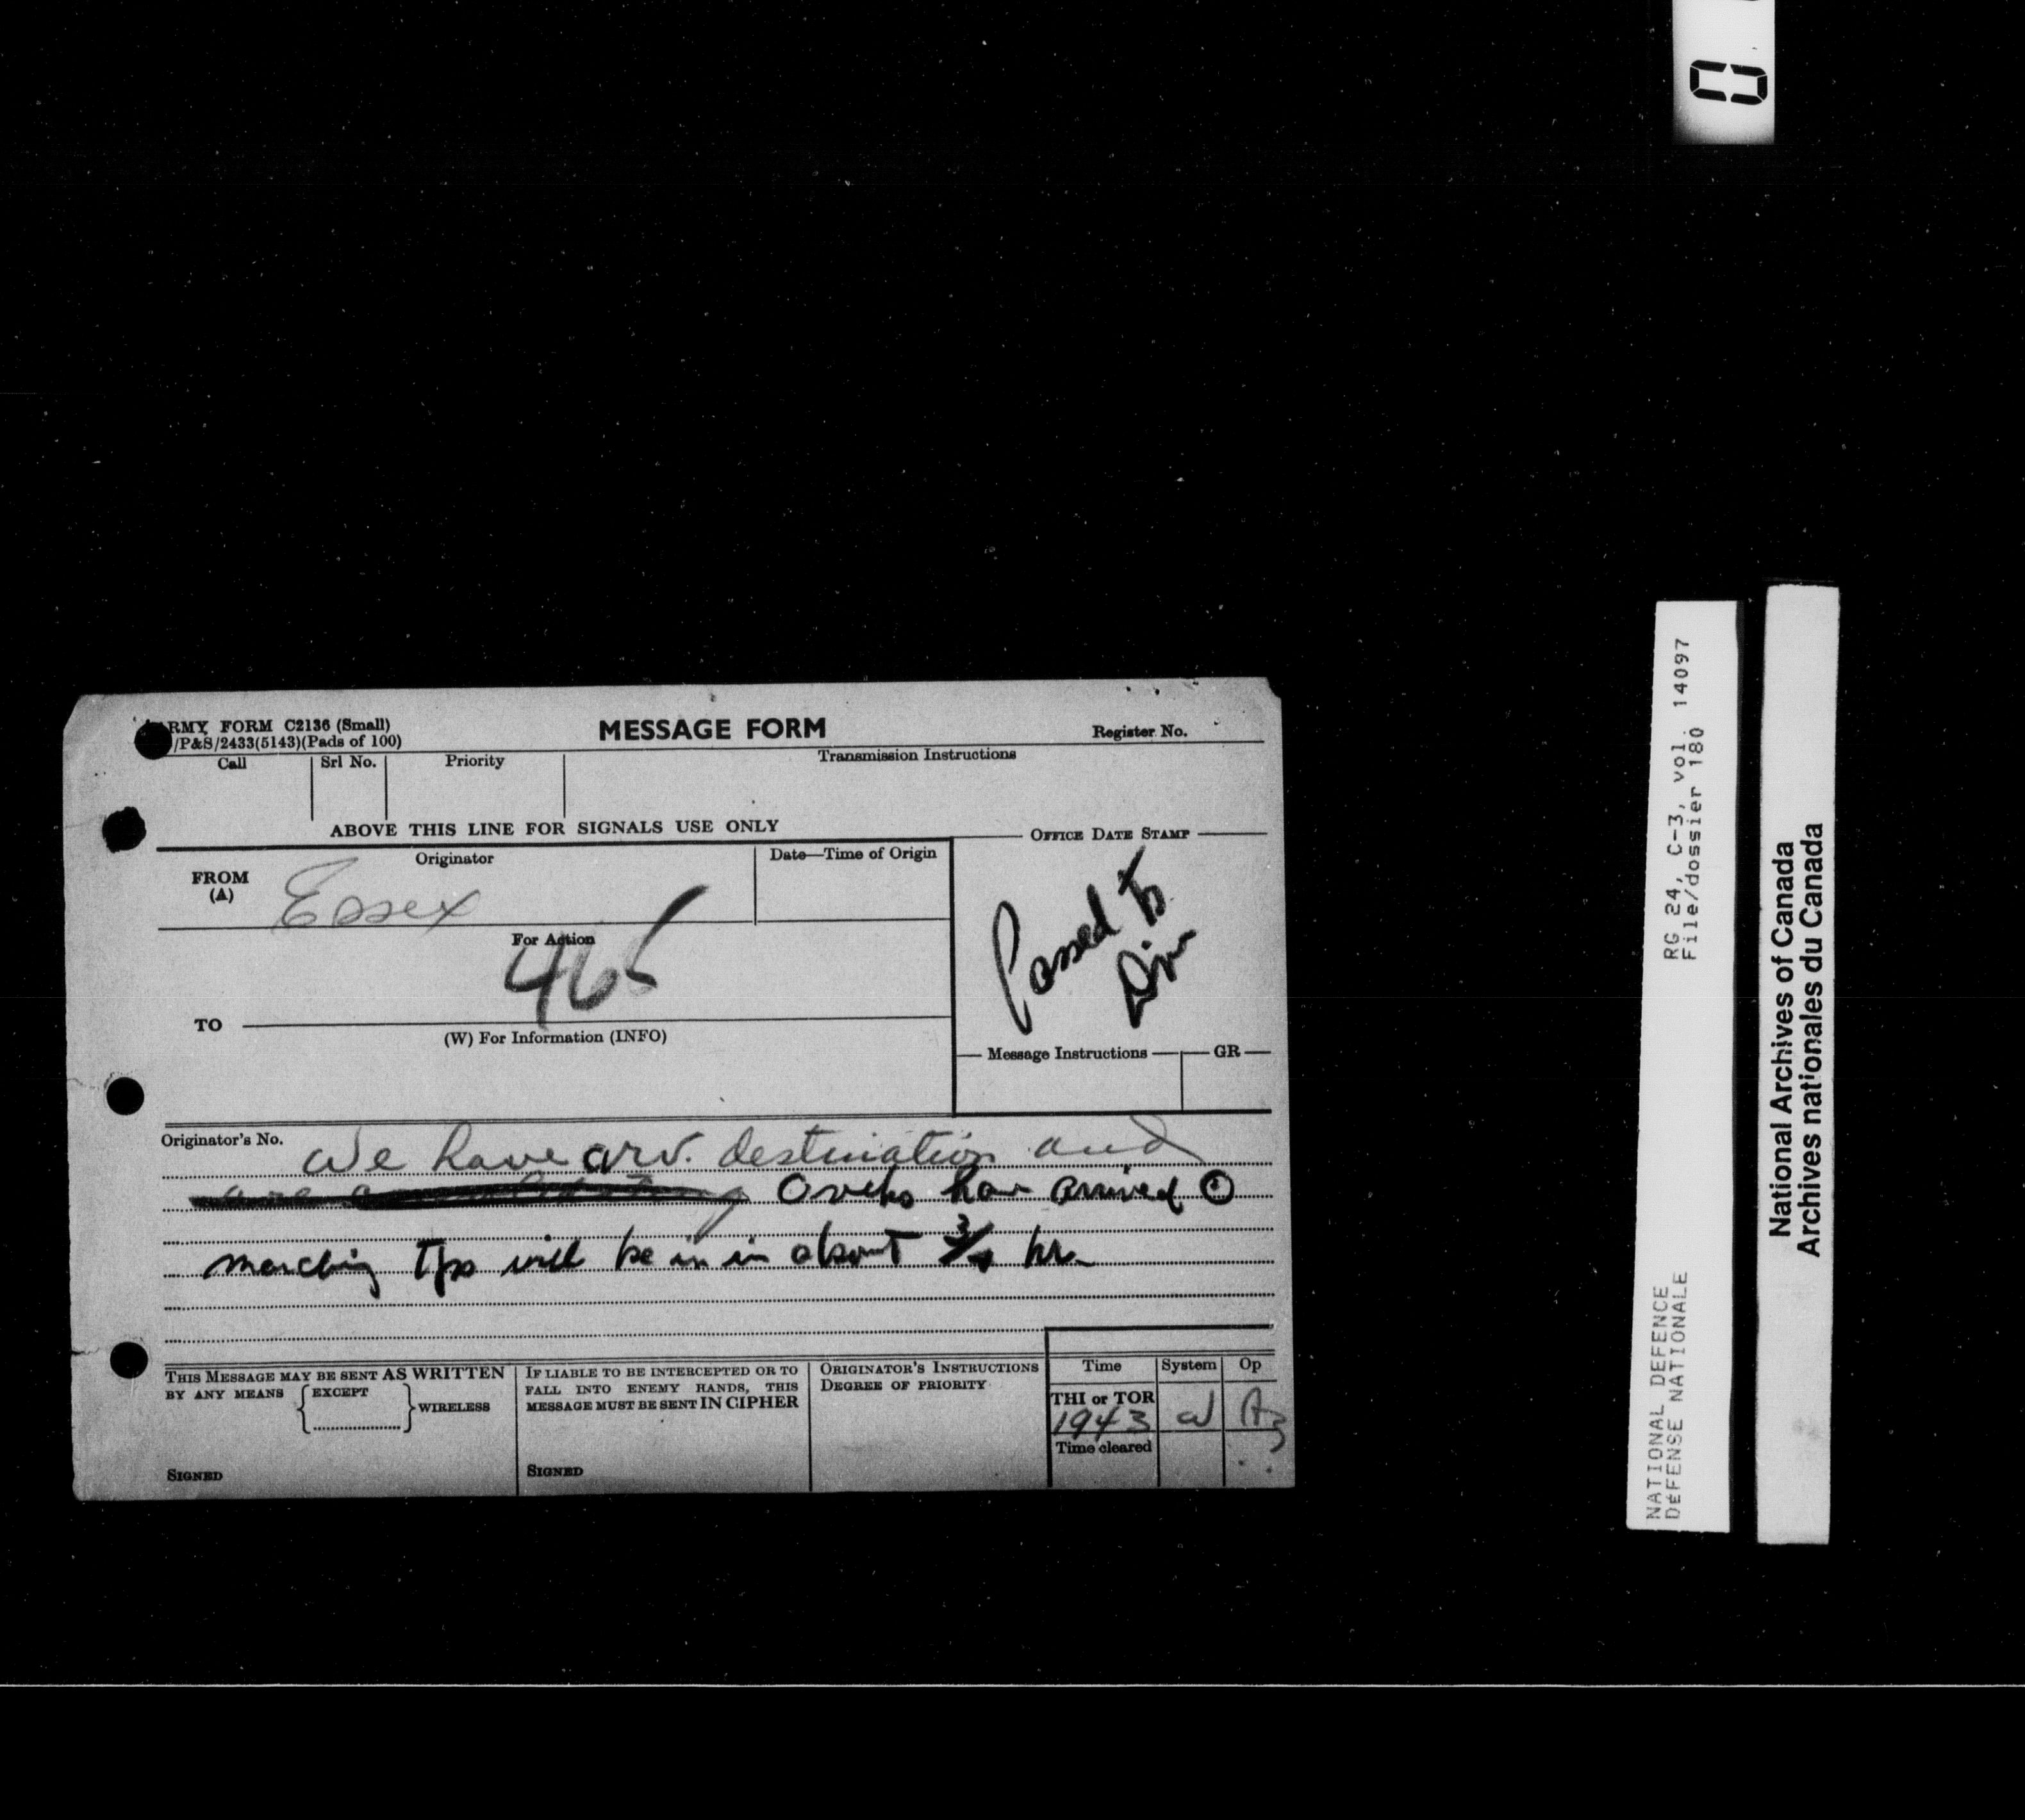 ARMY FORM C2136 (Small)
/P&S/2433(5143)(Pads of 100)
MESSAGE FORM
Register No.
Call
Srl No.
Priority
Transmission Instructions
ABOVE THIS LINE FOR SIGNALS USE ONLY
OFFICE DATE STAMP
FROM
(A)
Originator
Essex
Date—Time of Origin
Passed to
Div
For Action
465
TO
(W) For Information (INFO)
Message Instructions
GR
Originator's No.
We have arv. destination and
have arrived ⊙
marching Tps will be in in about 3/4 hr
THIS MESSAGE MAY BE SENT AS WRITTEN
BY ANY MEANS { EXCEPT } WIRELESS
SIGNED
IF LIABLE TO BE INTERCEPTED OR TO
FALL INTO ENEMY HANDS, THIS
MESSAGE MUST BE SENT IN CIPHER
SIGNED
ORIGINATOR'S INSTRUCTIONS
DEGREE OF PRIORITY
Time
System
Op
THI or TOR
1943
Time cleared
RG 24, C-3, vol. 14097
File/dossier 180
NATIONAL DEFENCE
DÉFENSE NATIONALE
National Archives of Canada
Archives nationales du Canada